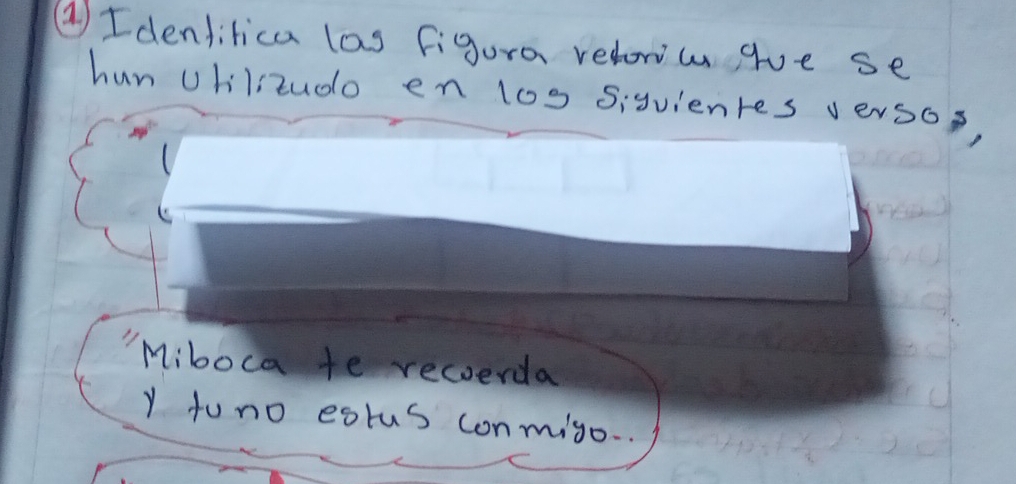 1 Identifica las figura retorica que se
han utilizado en los siguientes versos,
"Mi boca te recuerda
y tu no estas conmigo..